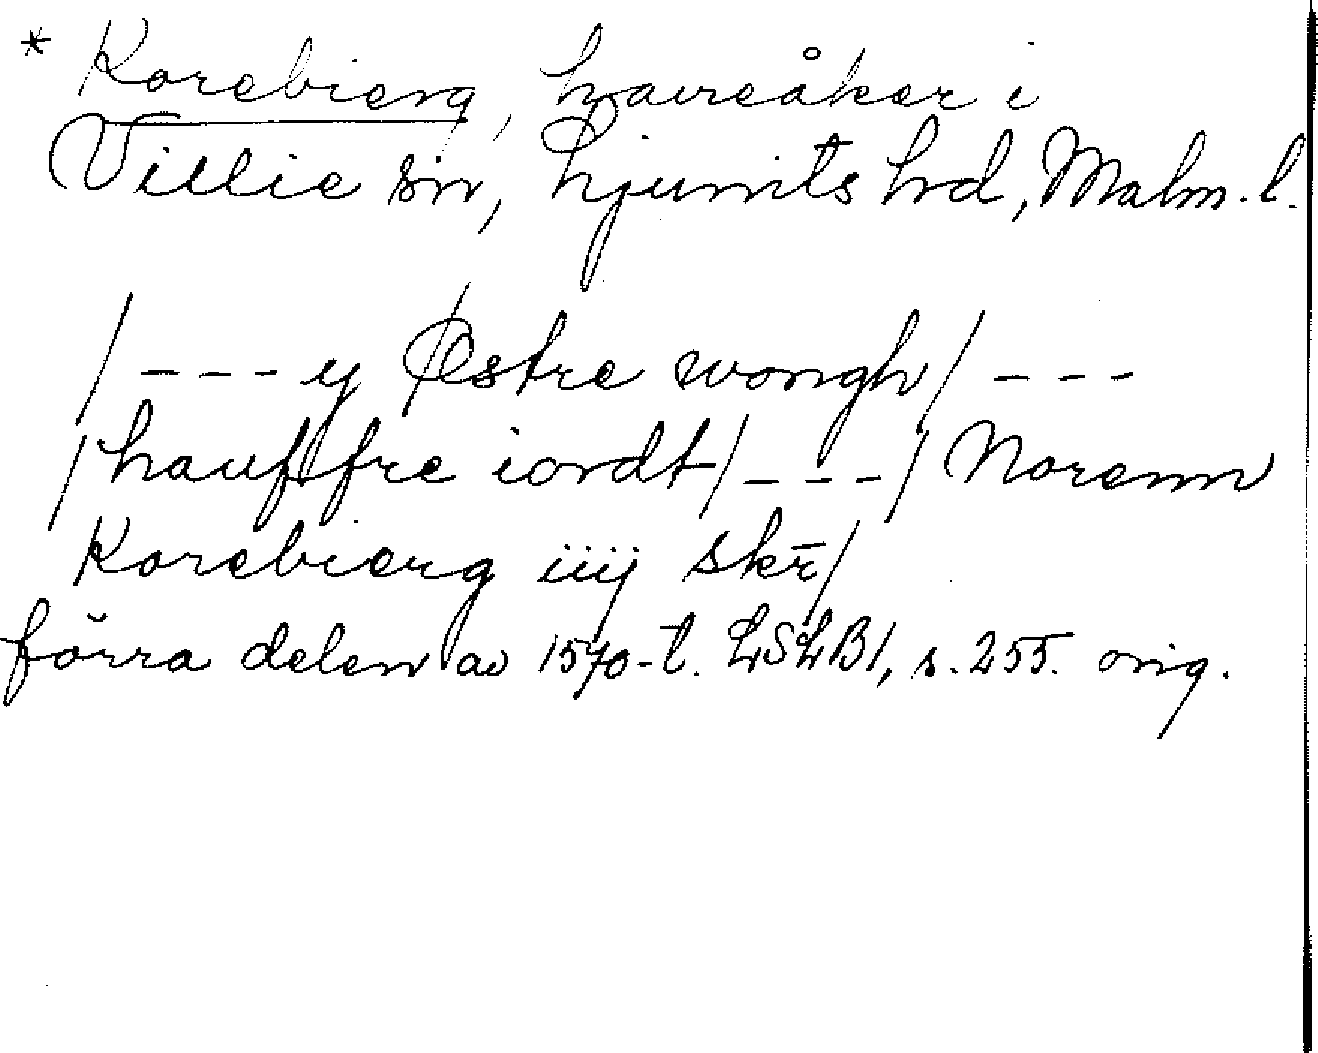 * Korebierg, havreåker i
Villie sn, Ljunits hd, Malm. l.
/ - - - y Østre wongh / - - -
/ hauffre iordt / - - - / Norenn
Korebierg iiij skr̄ /
förra delen av 1570-t. LSLB1, s. 255. orig.